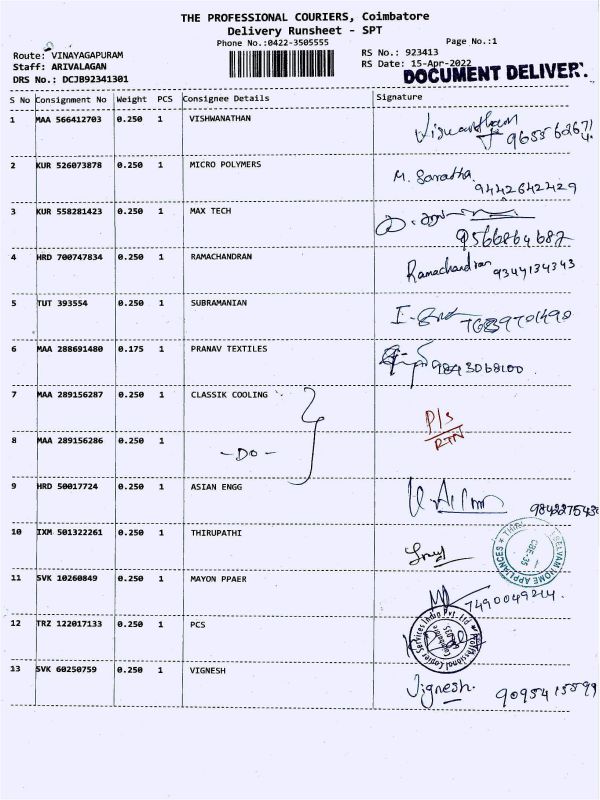 THE PROFESSIONAL COURIERS, Coimbatore
Delivery Runsheet - SPT
Phone No.:0422-3505555
Page No.:1
Route: VINAYAGAPURAM
RS No.: 923413
Staff: ARIVALAGAN
RS Date: 15-Apr-2022
DRS No.: DCJB92341301
DOCUMENT DELIVER.
S No Consignment No Weight PCS Consignee Details Signature
1 MAA 566412703 0.250 1 VISHWANATHAN
2 KUR 526073878 0.250 1 MICRO POLYMERS M. Saratha 9442642429
3 KUR 558281423 0.250 1 MAX TECH 9566864687
4 HRD 700747834 0.250 1 RAMACHANDRAN Ramachandran 9344134343
5 TUT 393554 0.250 1 SUBRAMANIAN
6 MAA 288691480 0.175 1 PRANAV TEXTILES 9843068100
7 MAA 289156287 0.250 1 CLASSIK COOLING P/S
RTN
8 MAA 289156286 0.250 1 -DO-
9 HRD 50017724 0.250 1 ASIAN ENGG
10 IXM 501322261 0.250 1 THIRUPATHI
11 SVK 10260849 0.250 1 MAYON PPAER 7490049214
12 TRZ 122017133 0.250 1 PCS
13 SVK 60250759 0.250 1 VIGNESH Vignesh. 9095415599